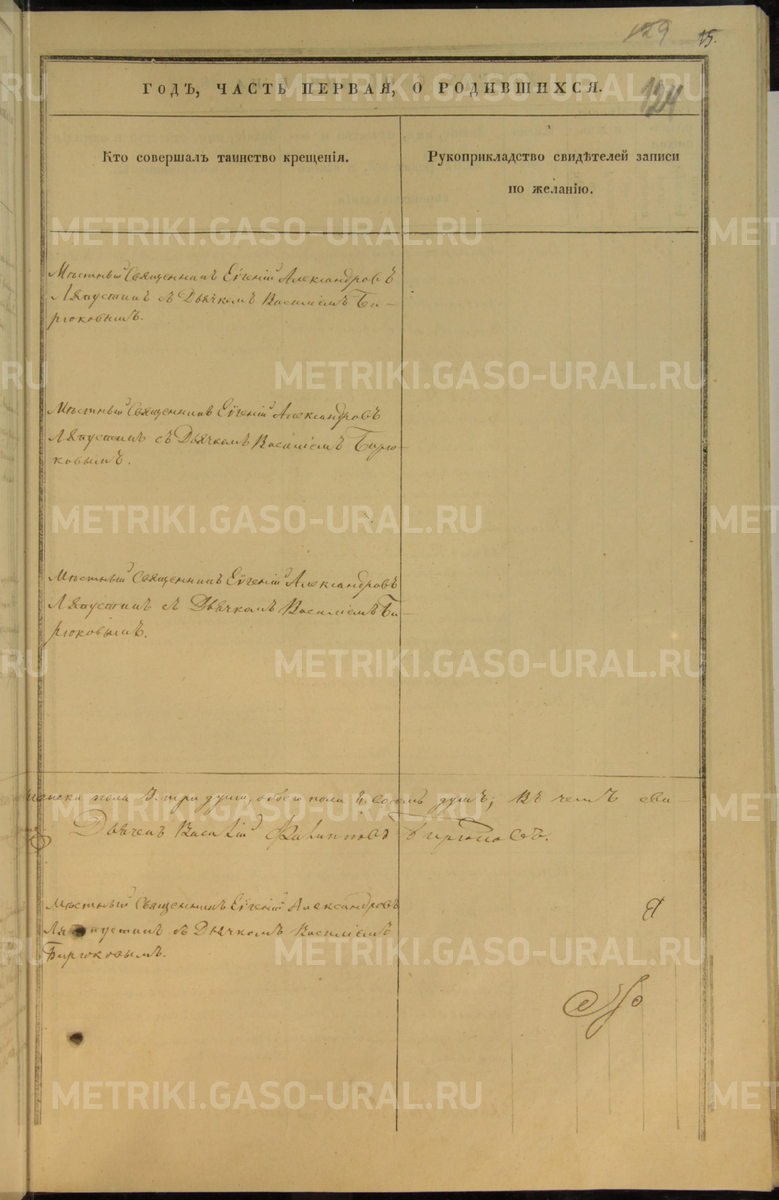 129
15.
124
ГОДЪ, ЧАСТЬ ПЕРВАЯ, О РОДИВШИХСЯ.
Кто совершалъ таинство крещенія.
Рукоприкладство свидѣтелей записи
по желанію.
Мѣстный Священникъ Евгеній Александровъ
Ляпустинъ съ Дьячкомъ Василіемъ Би-
рюковымъ.
Мѣстный Священникъ Евгеній Александровъ
Ляпустинъ съ Дьячкомъ Василіемъ Бирю-
ковымъ.
Мѣстный Священникъ Евгеній Александровъ
Ляпустинъ съ Дьячкомъ Василіемъ Би-
рюковымъ.
женска пола 3. три души, обоего пола душъ; Въ чемъ сви-
Дьячекъ Василій Филипповъ Бирюковъ.
Мѣстный Священникъ Евгеній Александровъ
Ляпустинъ съ Дьячкомъ Василіемъ
Бирюковымъ.
METRIKI.GASO-URAL.RU